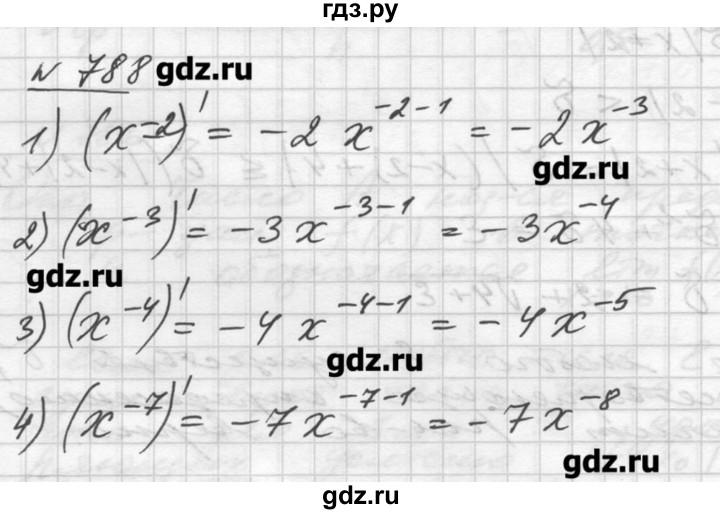 гдз.ру
№ 788 gdz.ru
1) (x^-2)' = -2 x^-2-1 = -2x^-3
gdz.ru
2) (x^-3)' = -3 x^-3-1 = -3x^-4
gdz.ru
3) (x^-4)' = -4 x^-4-1 = -4x^-5
gdz.ru
4) (x^-7)' = -7 x^-7-1 = -7x^-8
gdz.ru
gdz.ru